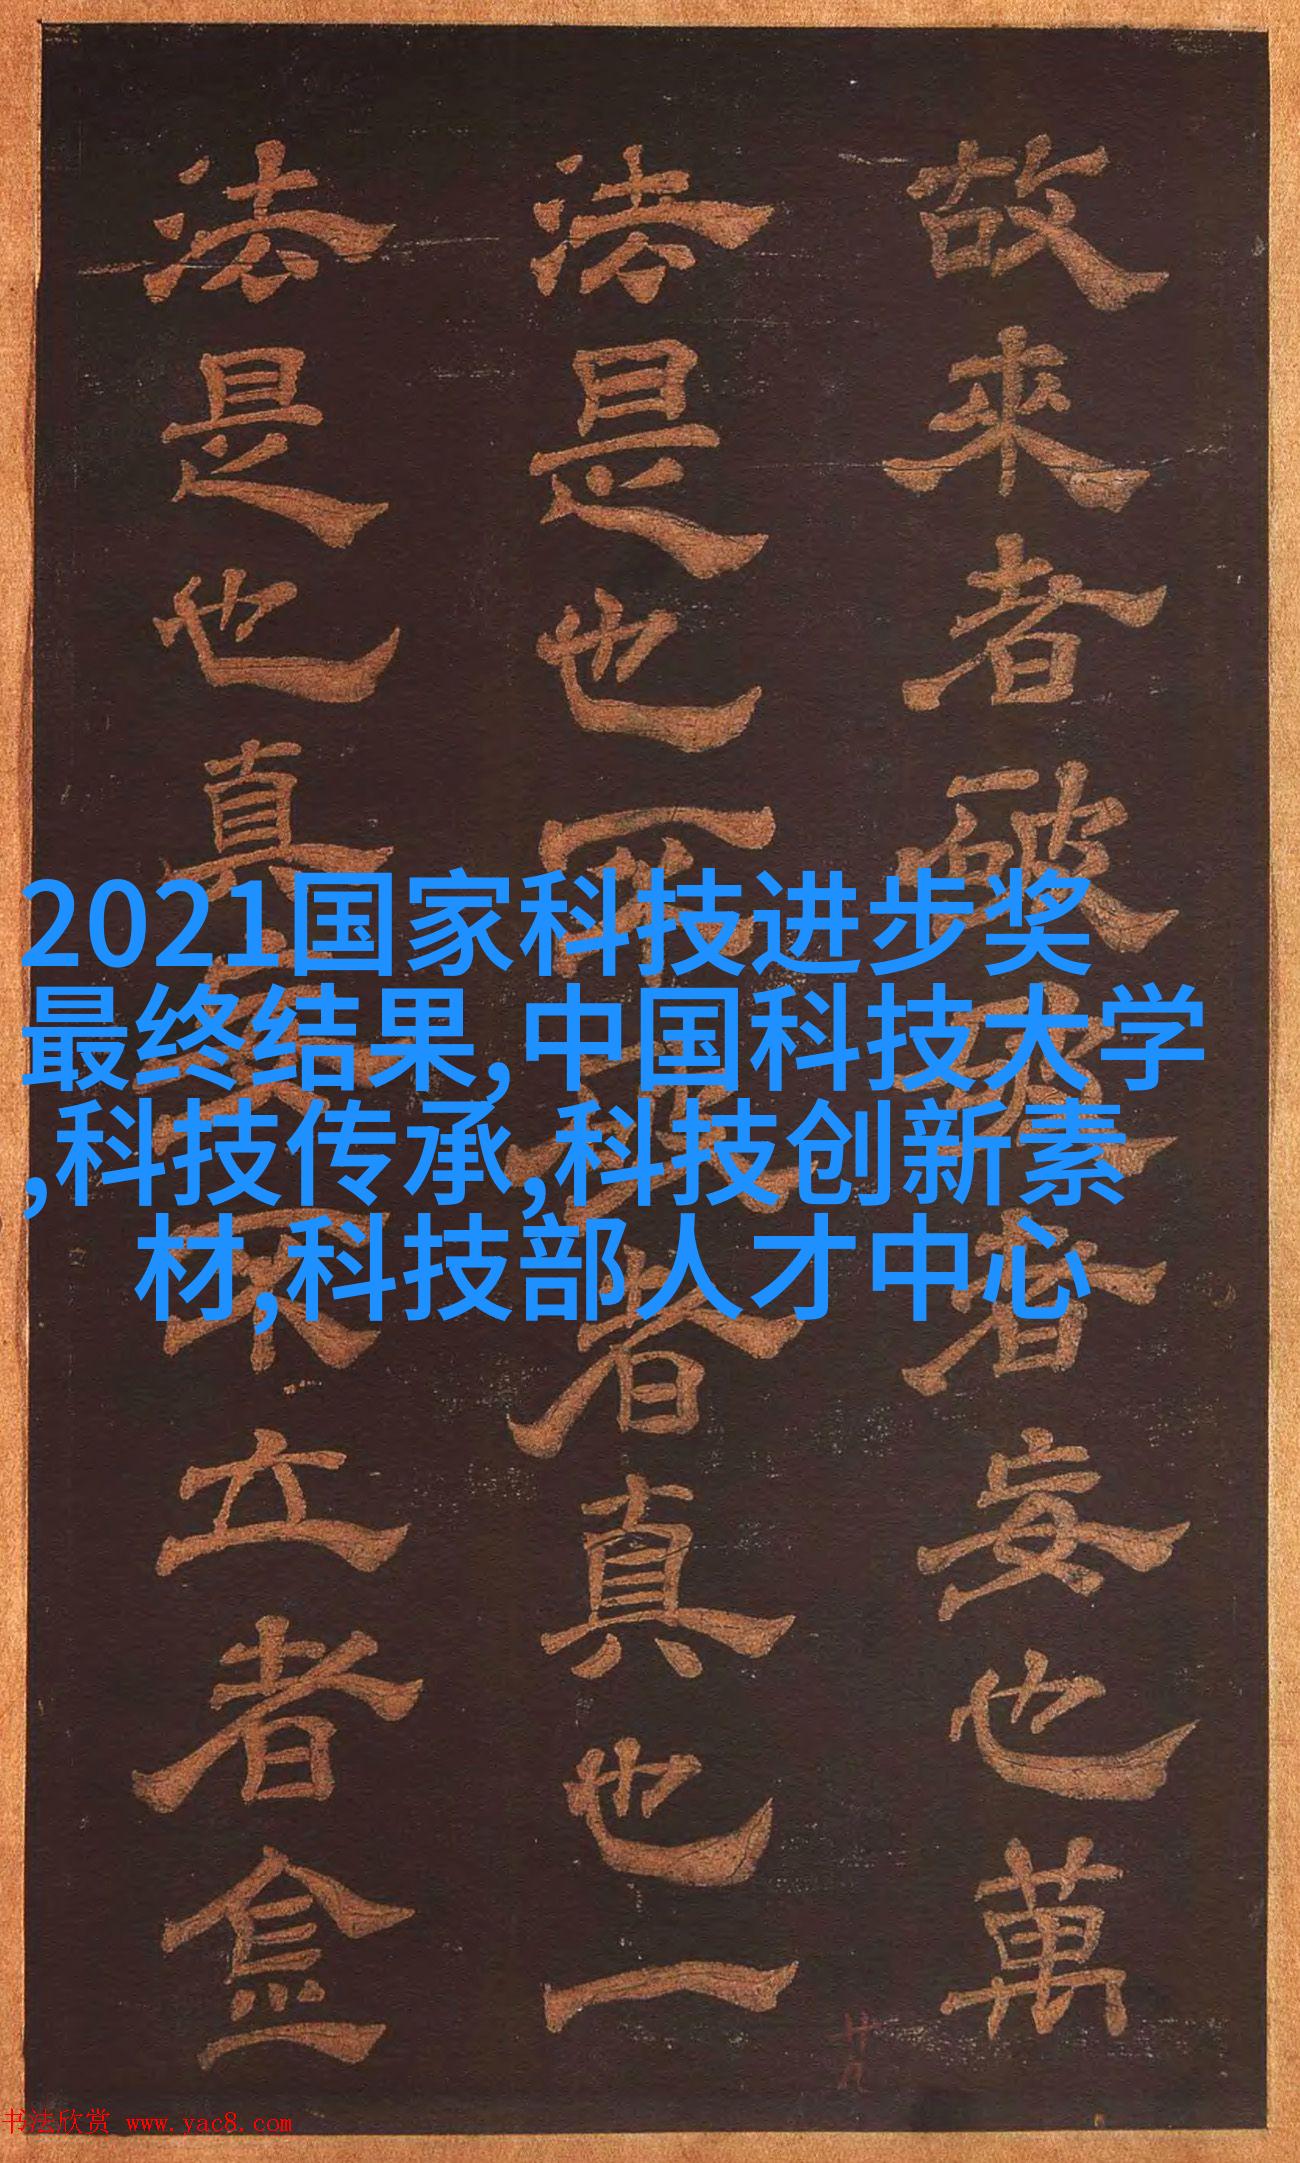 2021国家科技进步奖
最终结果,中国科技大学
,科技传承,科技创新素
材,科技部人才中心
故來者者妄也萬
法是也者真也一
法是也真不立者
书法欣赏 www.yac8.com